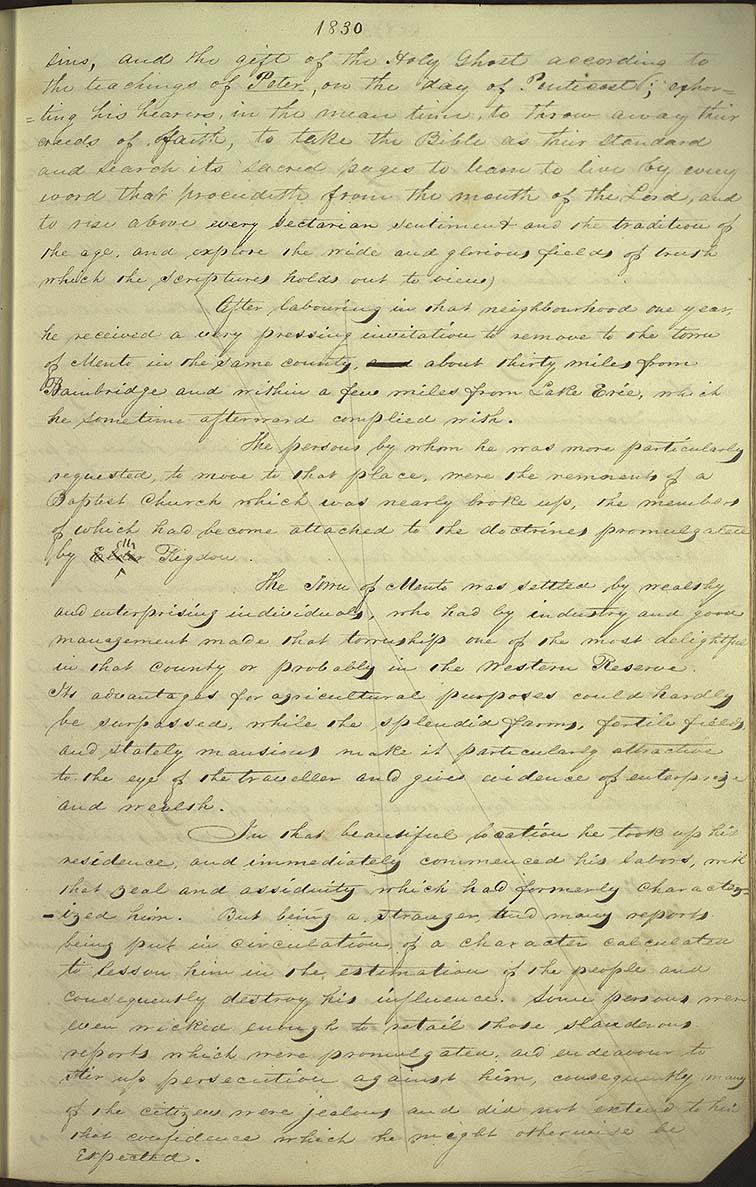 1830
sins, and the gift of the Holy Ghost according to
the teachings of Peter, on the day of Penticost; exhor=
=ting his hearers, in the mean time, to throw away their
creeds of faith, to take the Bible as their standard
and search its sacred pages to learn to live by every
word that proceedeth from the mouth of the Lord, and
to rise above every sectarian sentiment and the tradition of
the age, and explore the wide and glorious fields of truth
which the scriptures holds out to view)
After labouring in that neighbourhood one year,
he received a very pressing invitation to remove to the town
of Mento in the same county, and about thirty miles from
Bainbridge and within a few miles from Lake Erie, which
he sometime afterward complied with.
The persons by whom he was more particularly
requested, to move to that place, were the remnents of a
Baptist Church which was nearly broke up, the members
of which had become attached to the doctrines promulgated
by Elder Rigdon.
The Town of Mento was settled by wealthy
and enterprising individuals, who had by industry and good
management made that township one of the most delightful
in that county or probably in the Western Reserve.
Its advantages for agricultural purposes could hardly
be surpassed, while the splendid farms, fertile fields,
and stately mansions make it particularly attractive
to the eye of the traveller and gives evidence of enterprize
and wealth.
In that beautiful location he took up his
residence, and immediately commenced his labors, with
that zeal and assiduity which had formerly character=
=ized him. But being a stranger, and many reports
being put in circulation, of a character calculated
to lesson him in the estimation of the people and
consequently destroy his influence. Some persons were
even wicked enough to retail those slanderous
reports which were promulgated, and endeavour to
stir up persecution against him, consequently many
of the citizens were jealous and did not extend to him
that confidence which he might otherwise be
Expected.